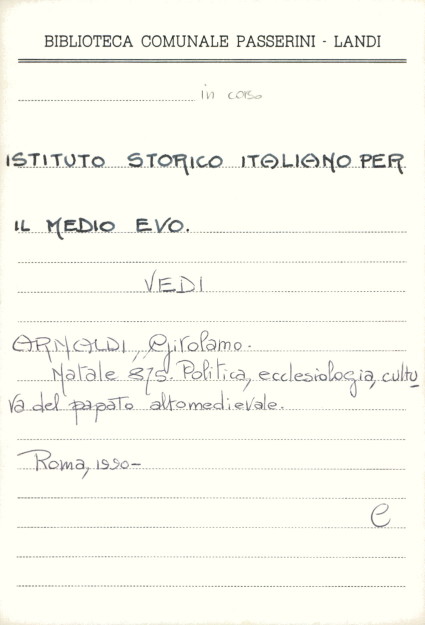 BIBLIOTECA COMUNALE PASSERINI - LANDI
in corso
ISTITUTO STORICO ITALIANO PER
IL MEDIO EVO.
VEDI
ARNALDI, Girolamo.
Natale 875. Politica, ecclesiologia, cultu
ra del papato altomedievale.
Roma, 1990-
C